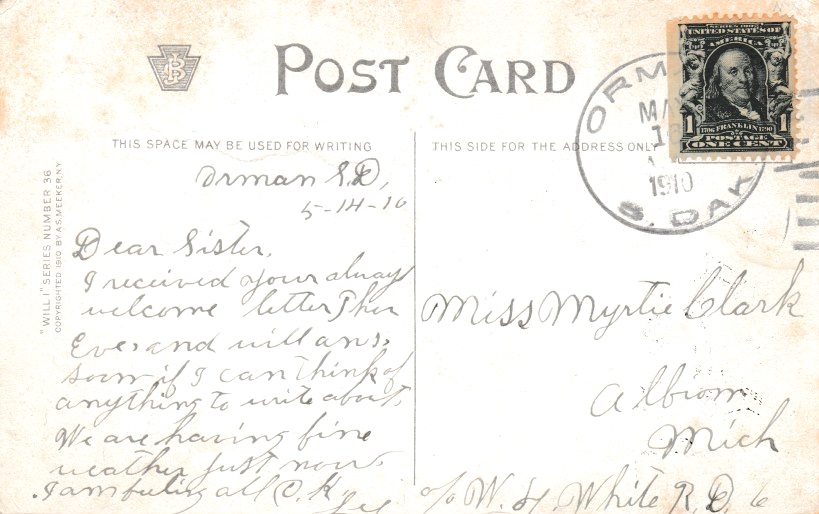 POST CARD
THIS SPACE MAY BE USED FOR WRITING
THIS SIDE FOR THE ADDRESS ONLY
"WILL I" SERIES NUMBER 36
COPYRIGHTED 1910 BY A.S. MEEKER. N.Y.
SERIES 1902
UNITED STATES OF
AMERICA
1 1706 FRANKLIN 1790 1
POSTAGE
ONE CENT
ORM
MA
1910
S. DAK
Orman S.D,
5-14-10
Dear Sister,
I received your alway
welcome letter Thur
Eve, and will ans,
soon if I can think of
anything to write about.
We are having fine
weather just now.
I am feeling all O.K
Miss Myrtie Clark
Albion
Mich
c/o W. H. White R.D. 6